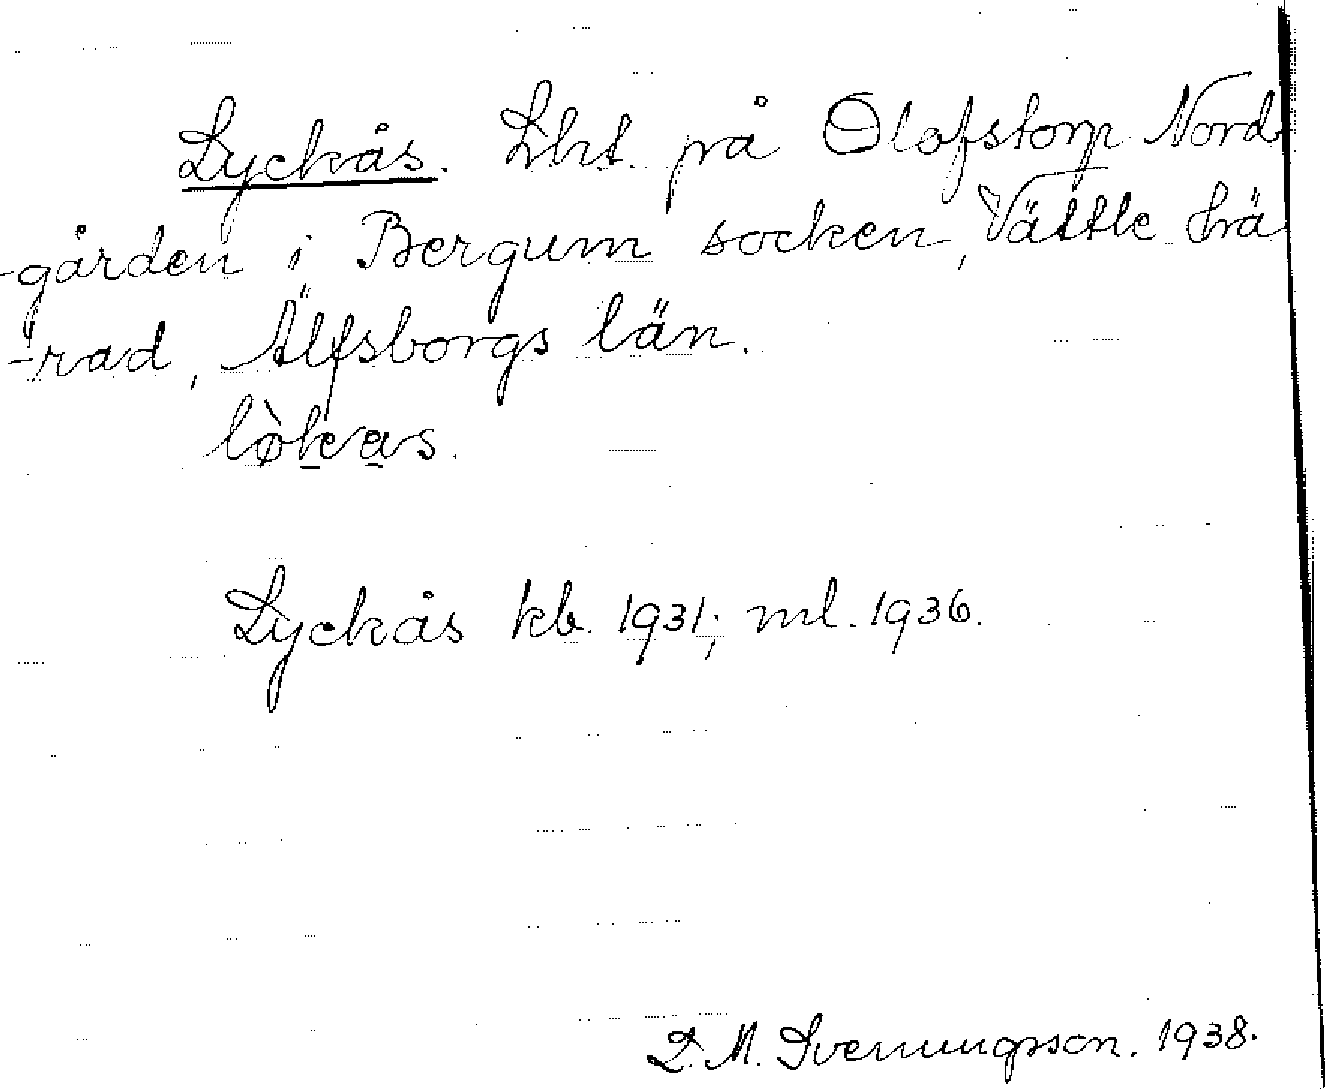 Lyckås. Lht. på Olofstorp Nord
-gården i Bergum socken, Vättle hä
-rad, Älfsborgs län.
lø̀kas.
Lyckås kb. 1931; ml. 1936.
D. M. Svenungsson. 1938.